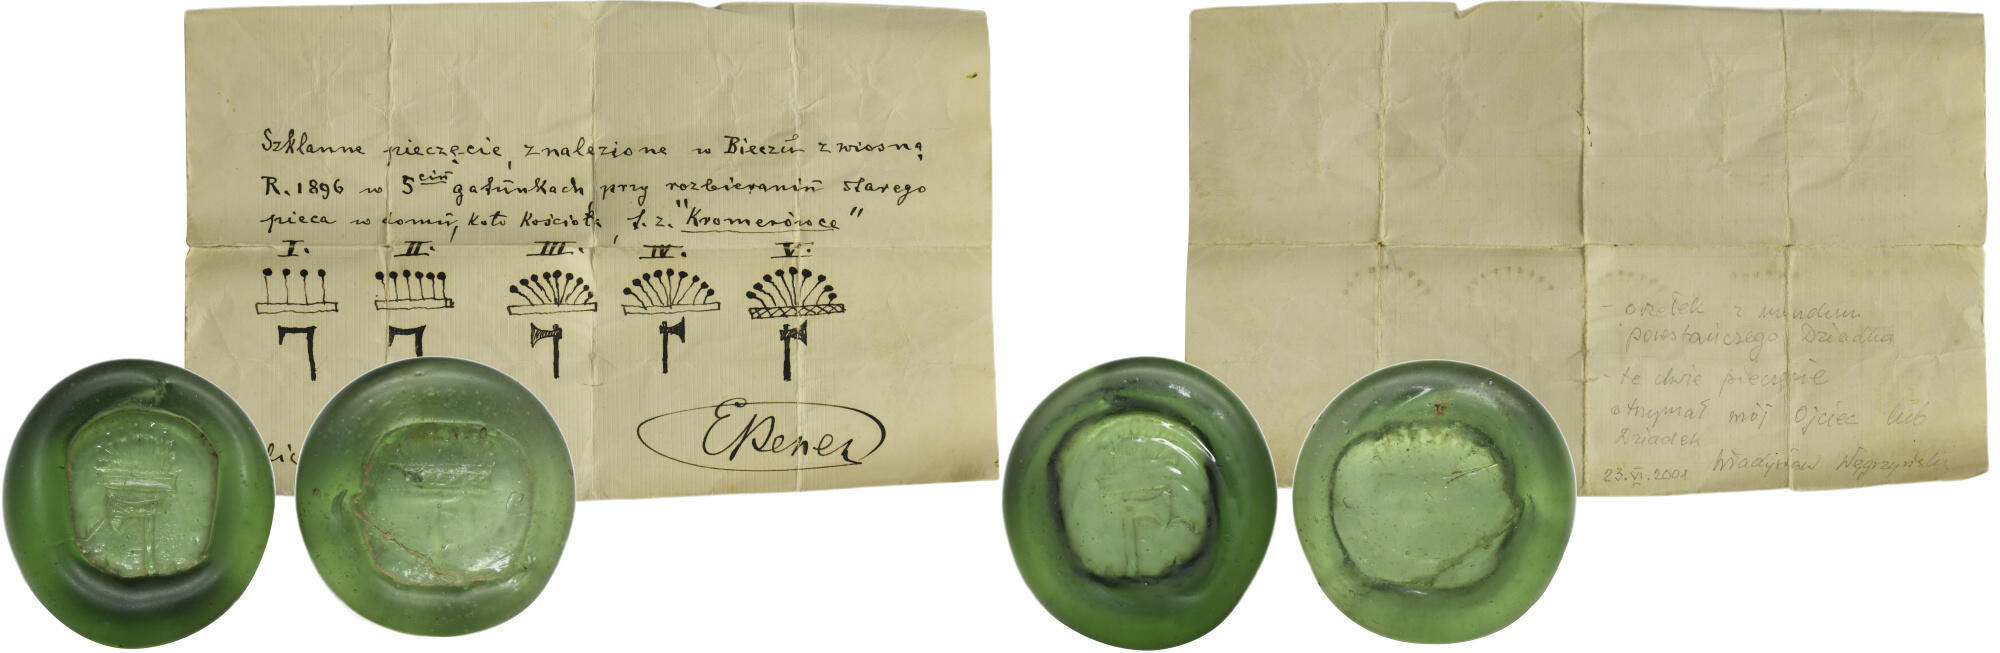 Szklanne pieczęcie, znalezione w Bieczu z wiosną
R. 1896 w 5ciu gatunkach przy rozbieraniu starego
pieca w domu, koło Kościoła, t. z. "Kromerówce"
I. II. III. IV. V.
- orzełek z munduru
powstańczego Dziadka
- te dwie pieczęcie
otrzymał mój Ojciec lub
Dziadek
Władysław Węgrzyński
23.VI.2001